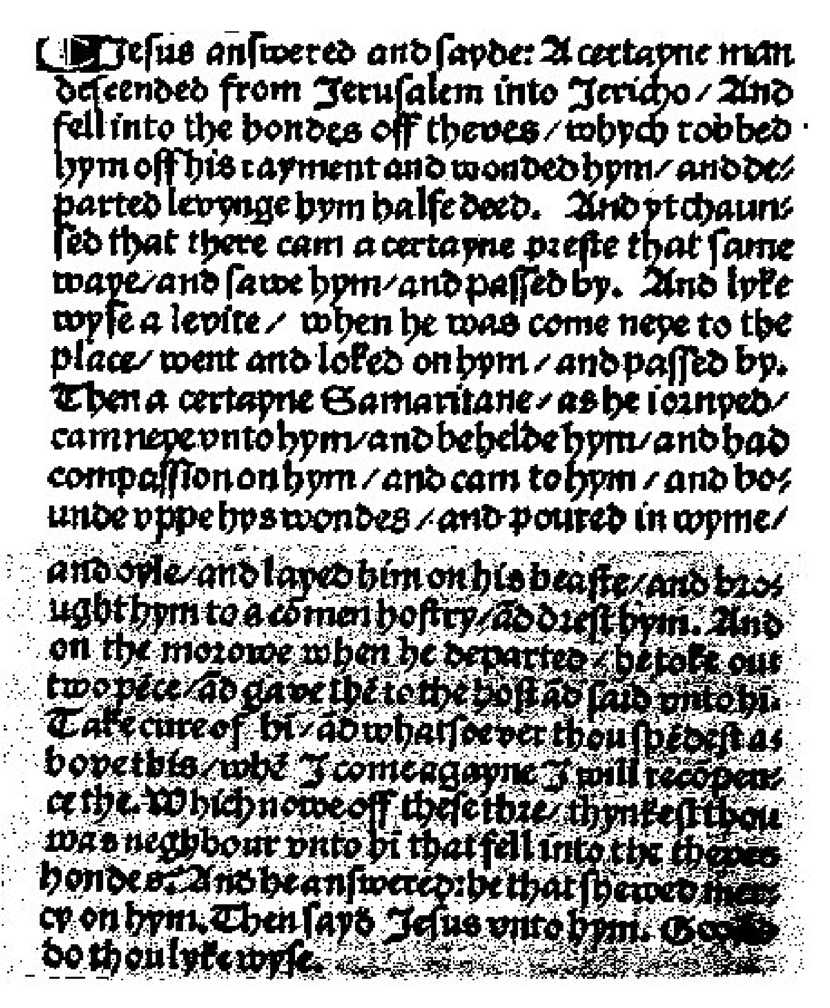 Jesus answered and sayde: A certayne man
descended from Jerusalem into Jericho / And
fell into the hondes off theves / whych robbed
hym off his rayment and wonded hym / and de⸗
parted levynge hym halfe deed. And yt chaun⸗
sed that there cam a certayne preste that same
waye / and sawe hym / and passed by. And lyke
wyse a levite / when he was come neye to the
place / went and loked on hym / and passed by.
Then a certayne Samaritane / as he iornyed /
cam neye vnto hym / and behelde hym / and had
compassion on hym / and cam to hym / and bo⸗
unde vppe hys wondes / and poured in wyme /
and oyle / and layed him on his beaste / and bro⸗
ught hym to a cōmen hostry / ād drest hym. And
on the morowe when he departed / he toke out
two pēce / ād gave thē to the host ād said vnto hī.
Take cure of hī / ād whatsoever thou spēdest a⸗
bove this / whē I come agayne I will recōpen⸗
ce the. Which nowe off these thre / thynkest thou
was neghbour vnto hī that fell into the theves
hondes? And he answered: he that shewed mer⸗
cy on hym. Then sayd Jesus vnto hym. Goo and
do thou lyke wyse.